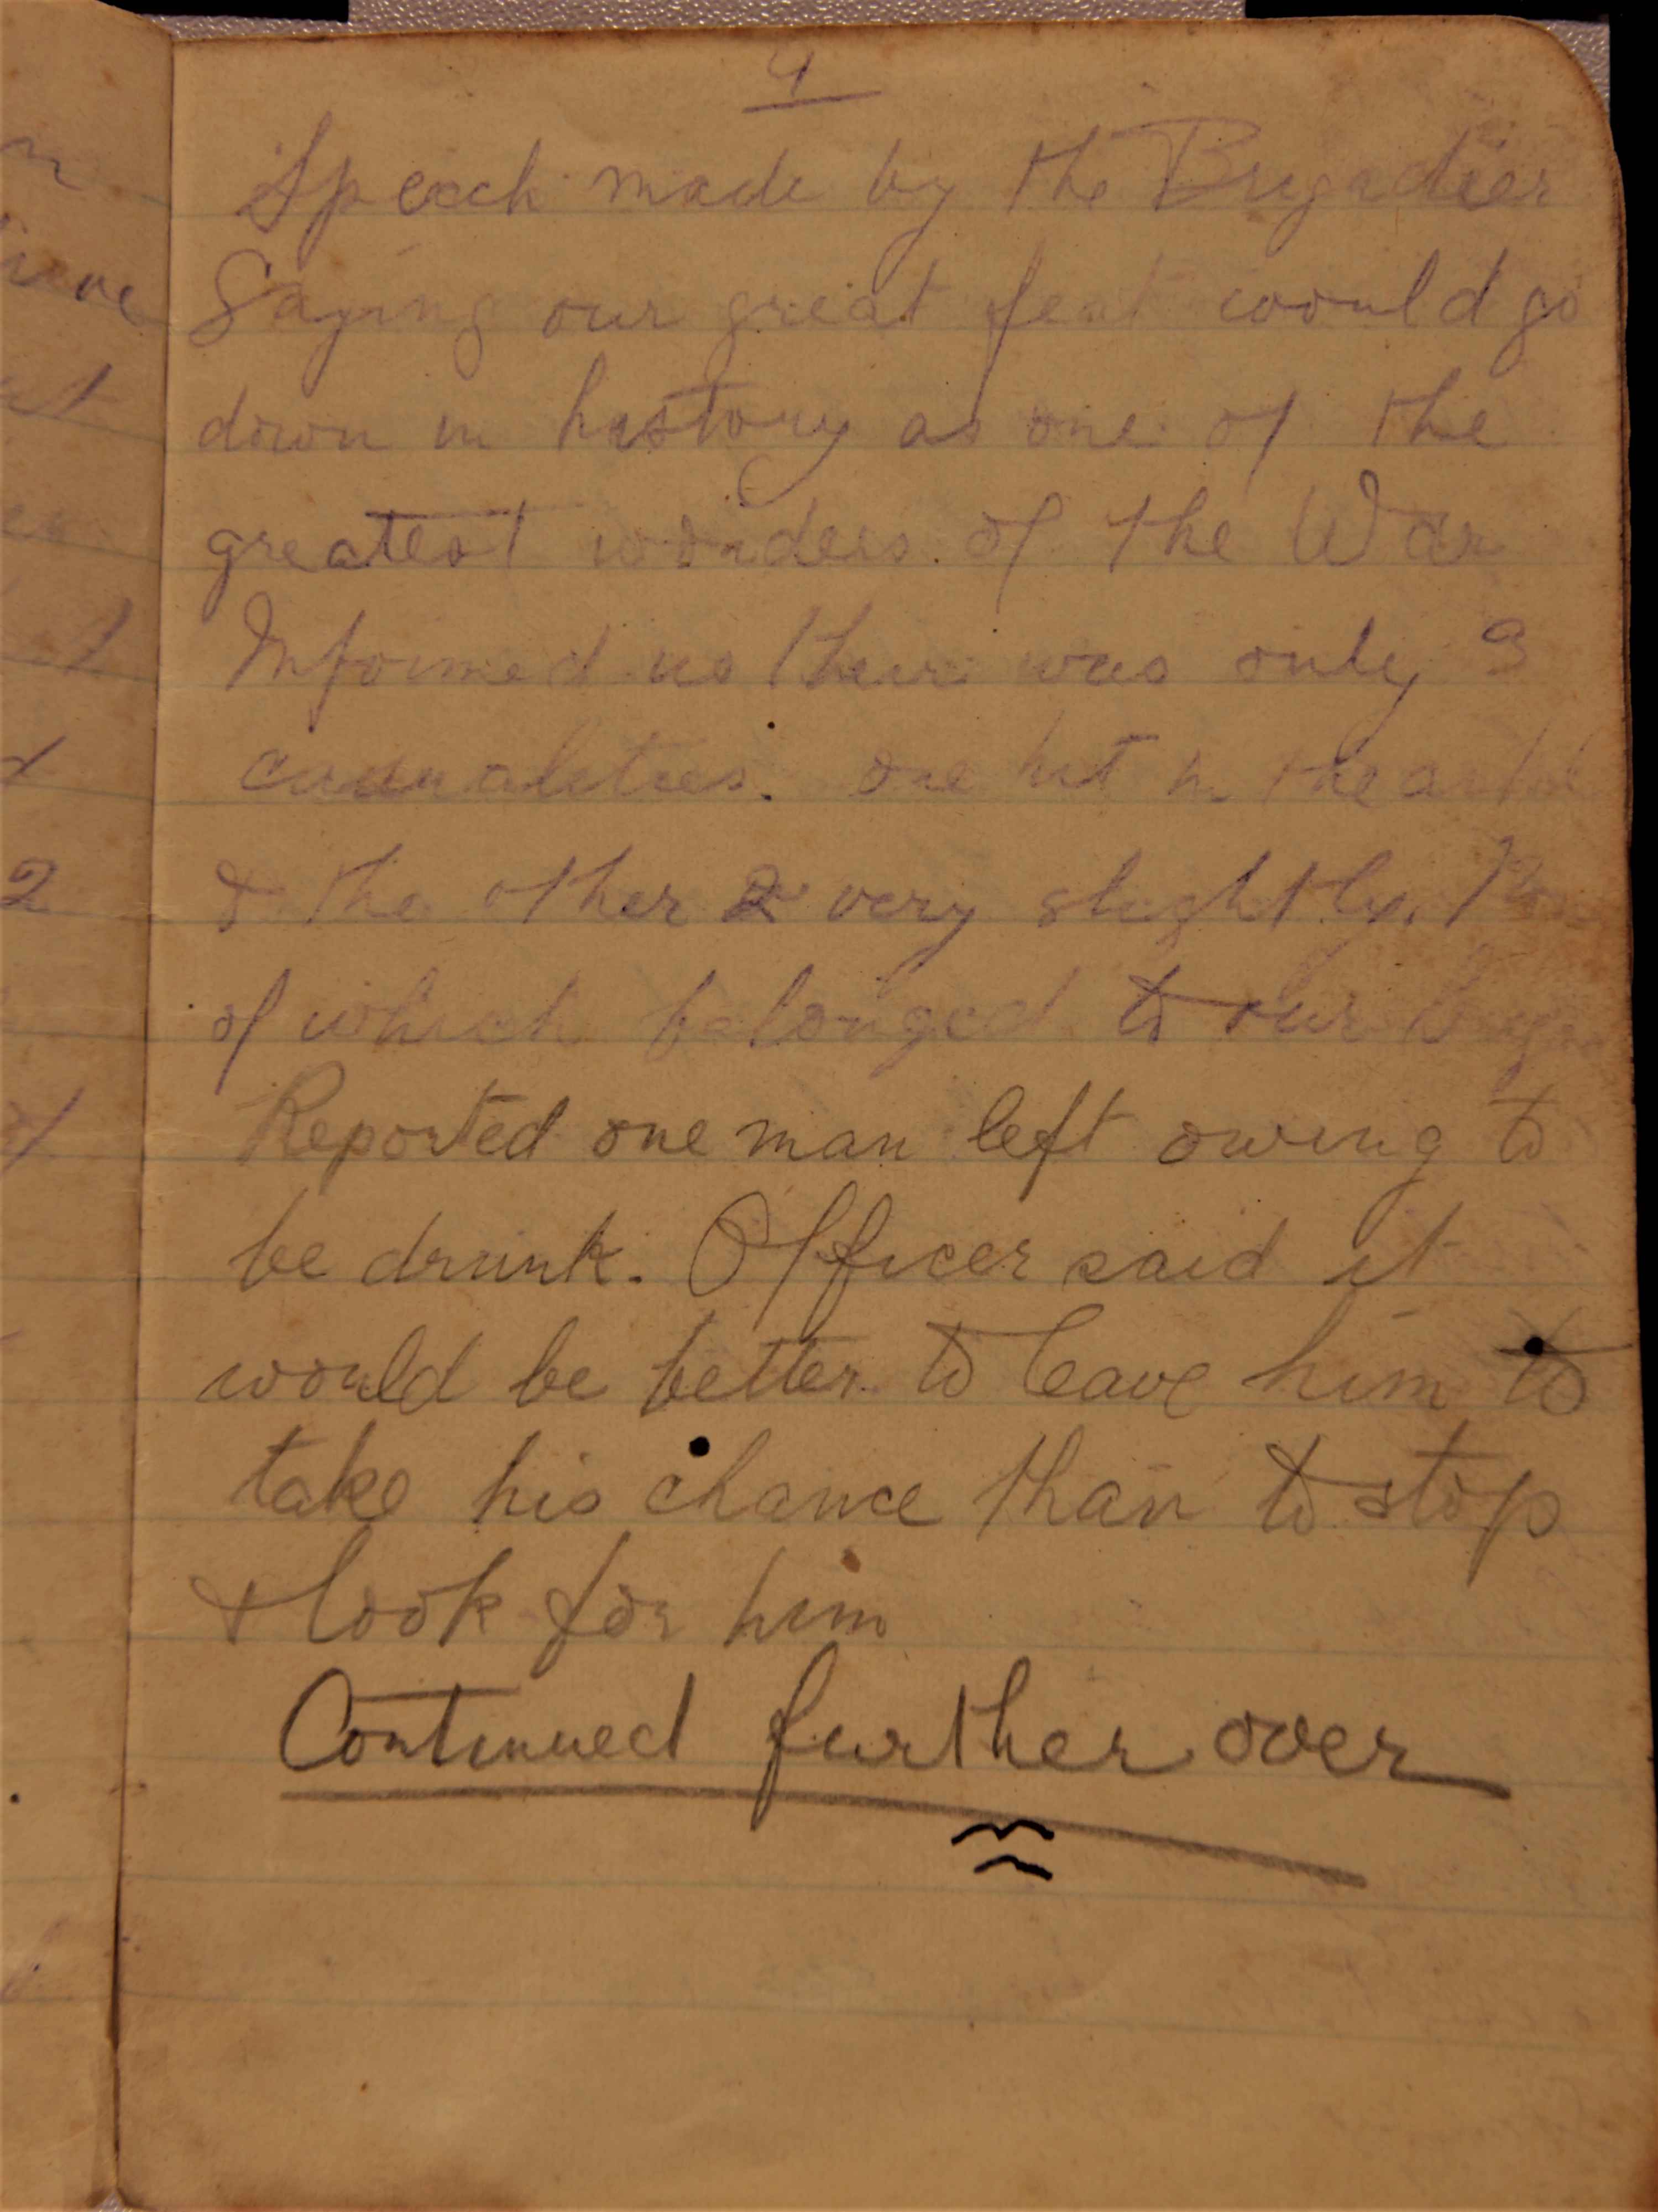 9
Speech made by the Brigadier
Saying our great feat would go
down in history as one of the
greatest wonders of the War
Informed us their was only 3
casualities. one hit in the
& the other 2 very slightly.
of which belonged to our
Reported one man left owing to
be drunk. Officer said it
would be better to leave him to
take his chance than to stop
& look for him
Continued further over
2